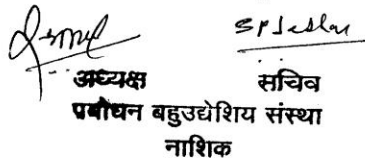 अध्यक्ष सचिव
प्रबोधन बहुउद्येशिय संस्था
नाशिक